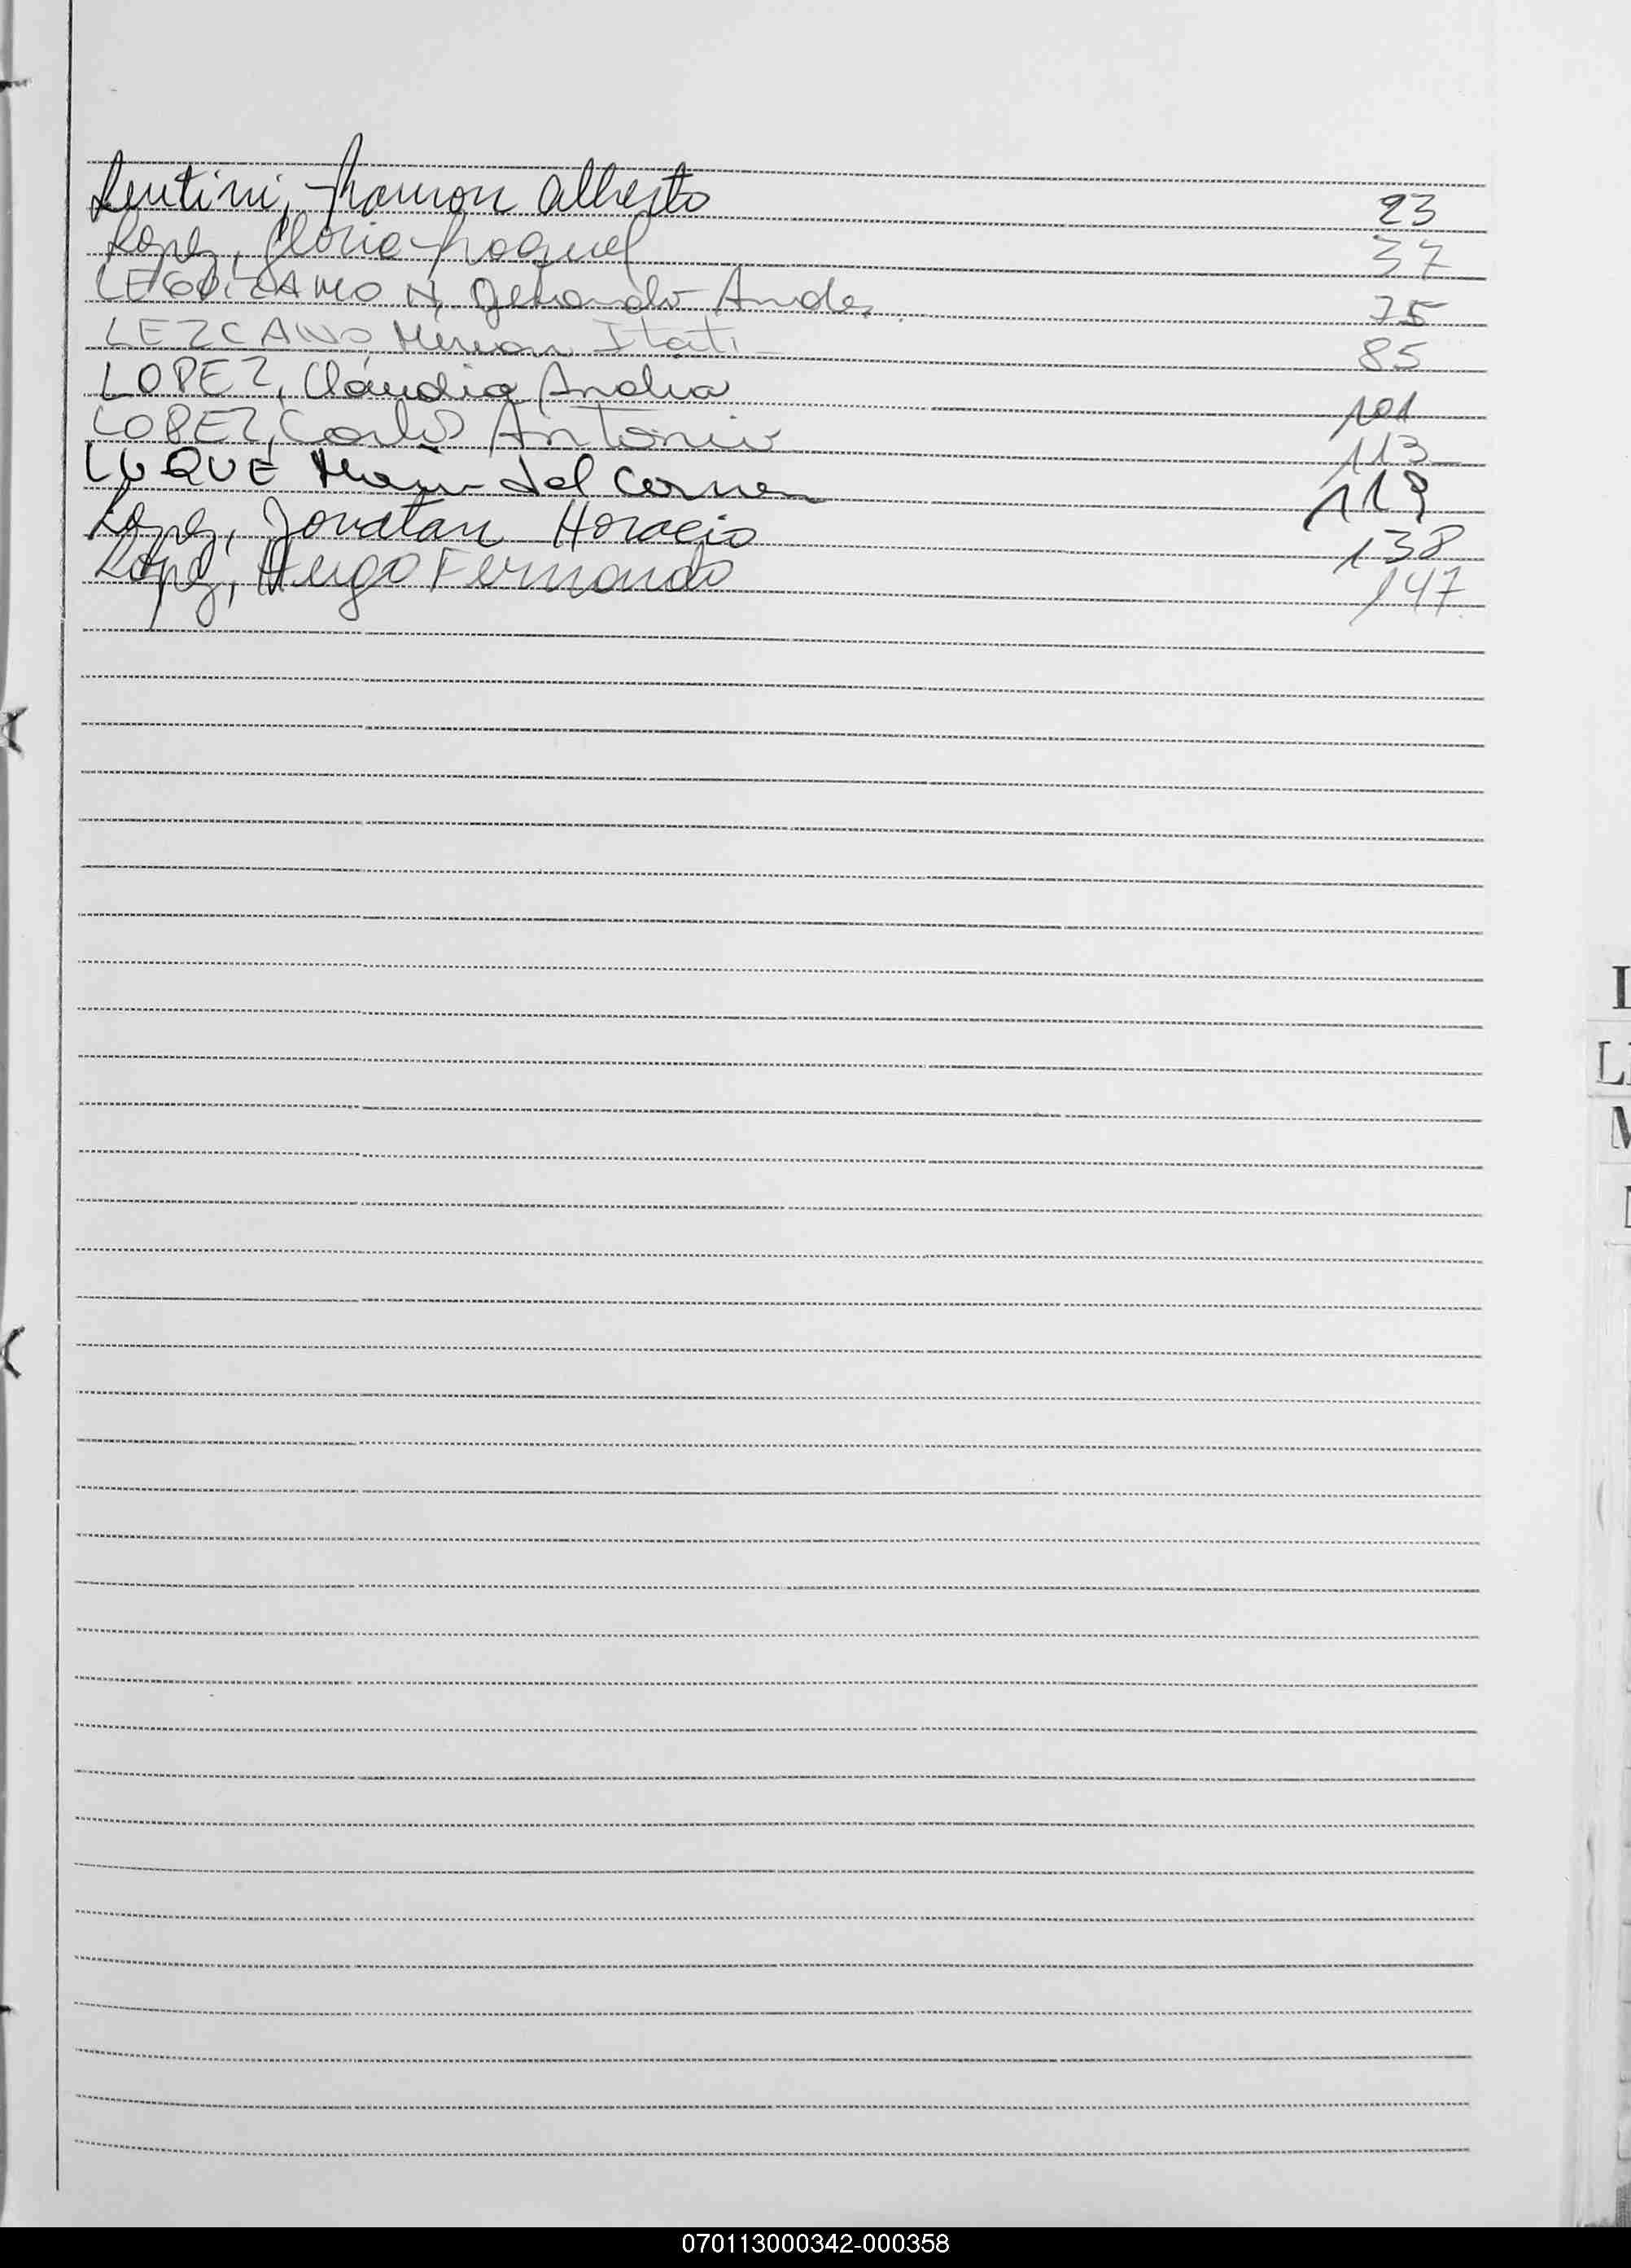 Lentini, Ramon Alberto 23
Lopez, Gloria Raquel 37
LEGUIZAMO N, Gerardo Andes. 75
LEZCANO, Mirian Itati 85
LOPEZ, Claudia Andrea 101
LOPEZ, Carlos Antonio 113
LUQUE Maria del Carmen 119
Lopez, Jonatan Horacio 138
Lopez, Hugo Fernando 147
070113000342-000358